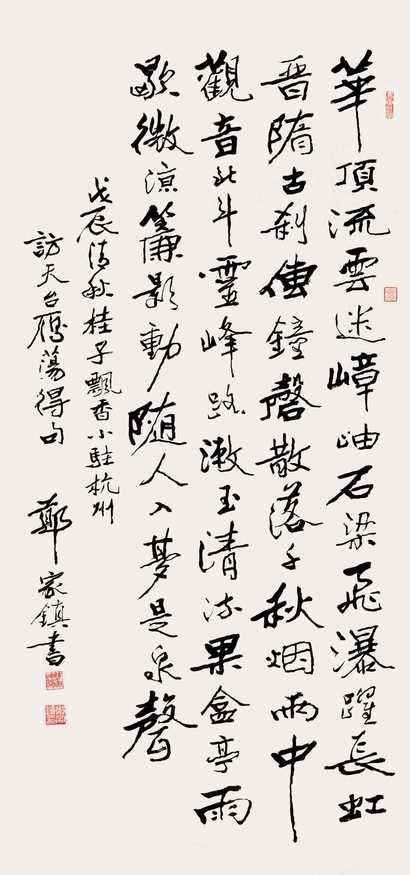 華頂流雲迷嶂岫石梁飛瀑躍長虹
晋隋古刹傳鐘磬散落千秋烟雨中
觀音北斗靈峰路漱玉清流果盒亭雨
歇微涼簾影動隨人入夢是泉聲
戊辰清秋桂子飄香小駐杭州
訪天台雁蕩得句 鄭家鎮書